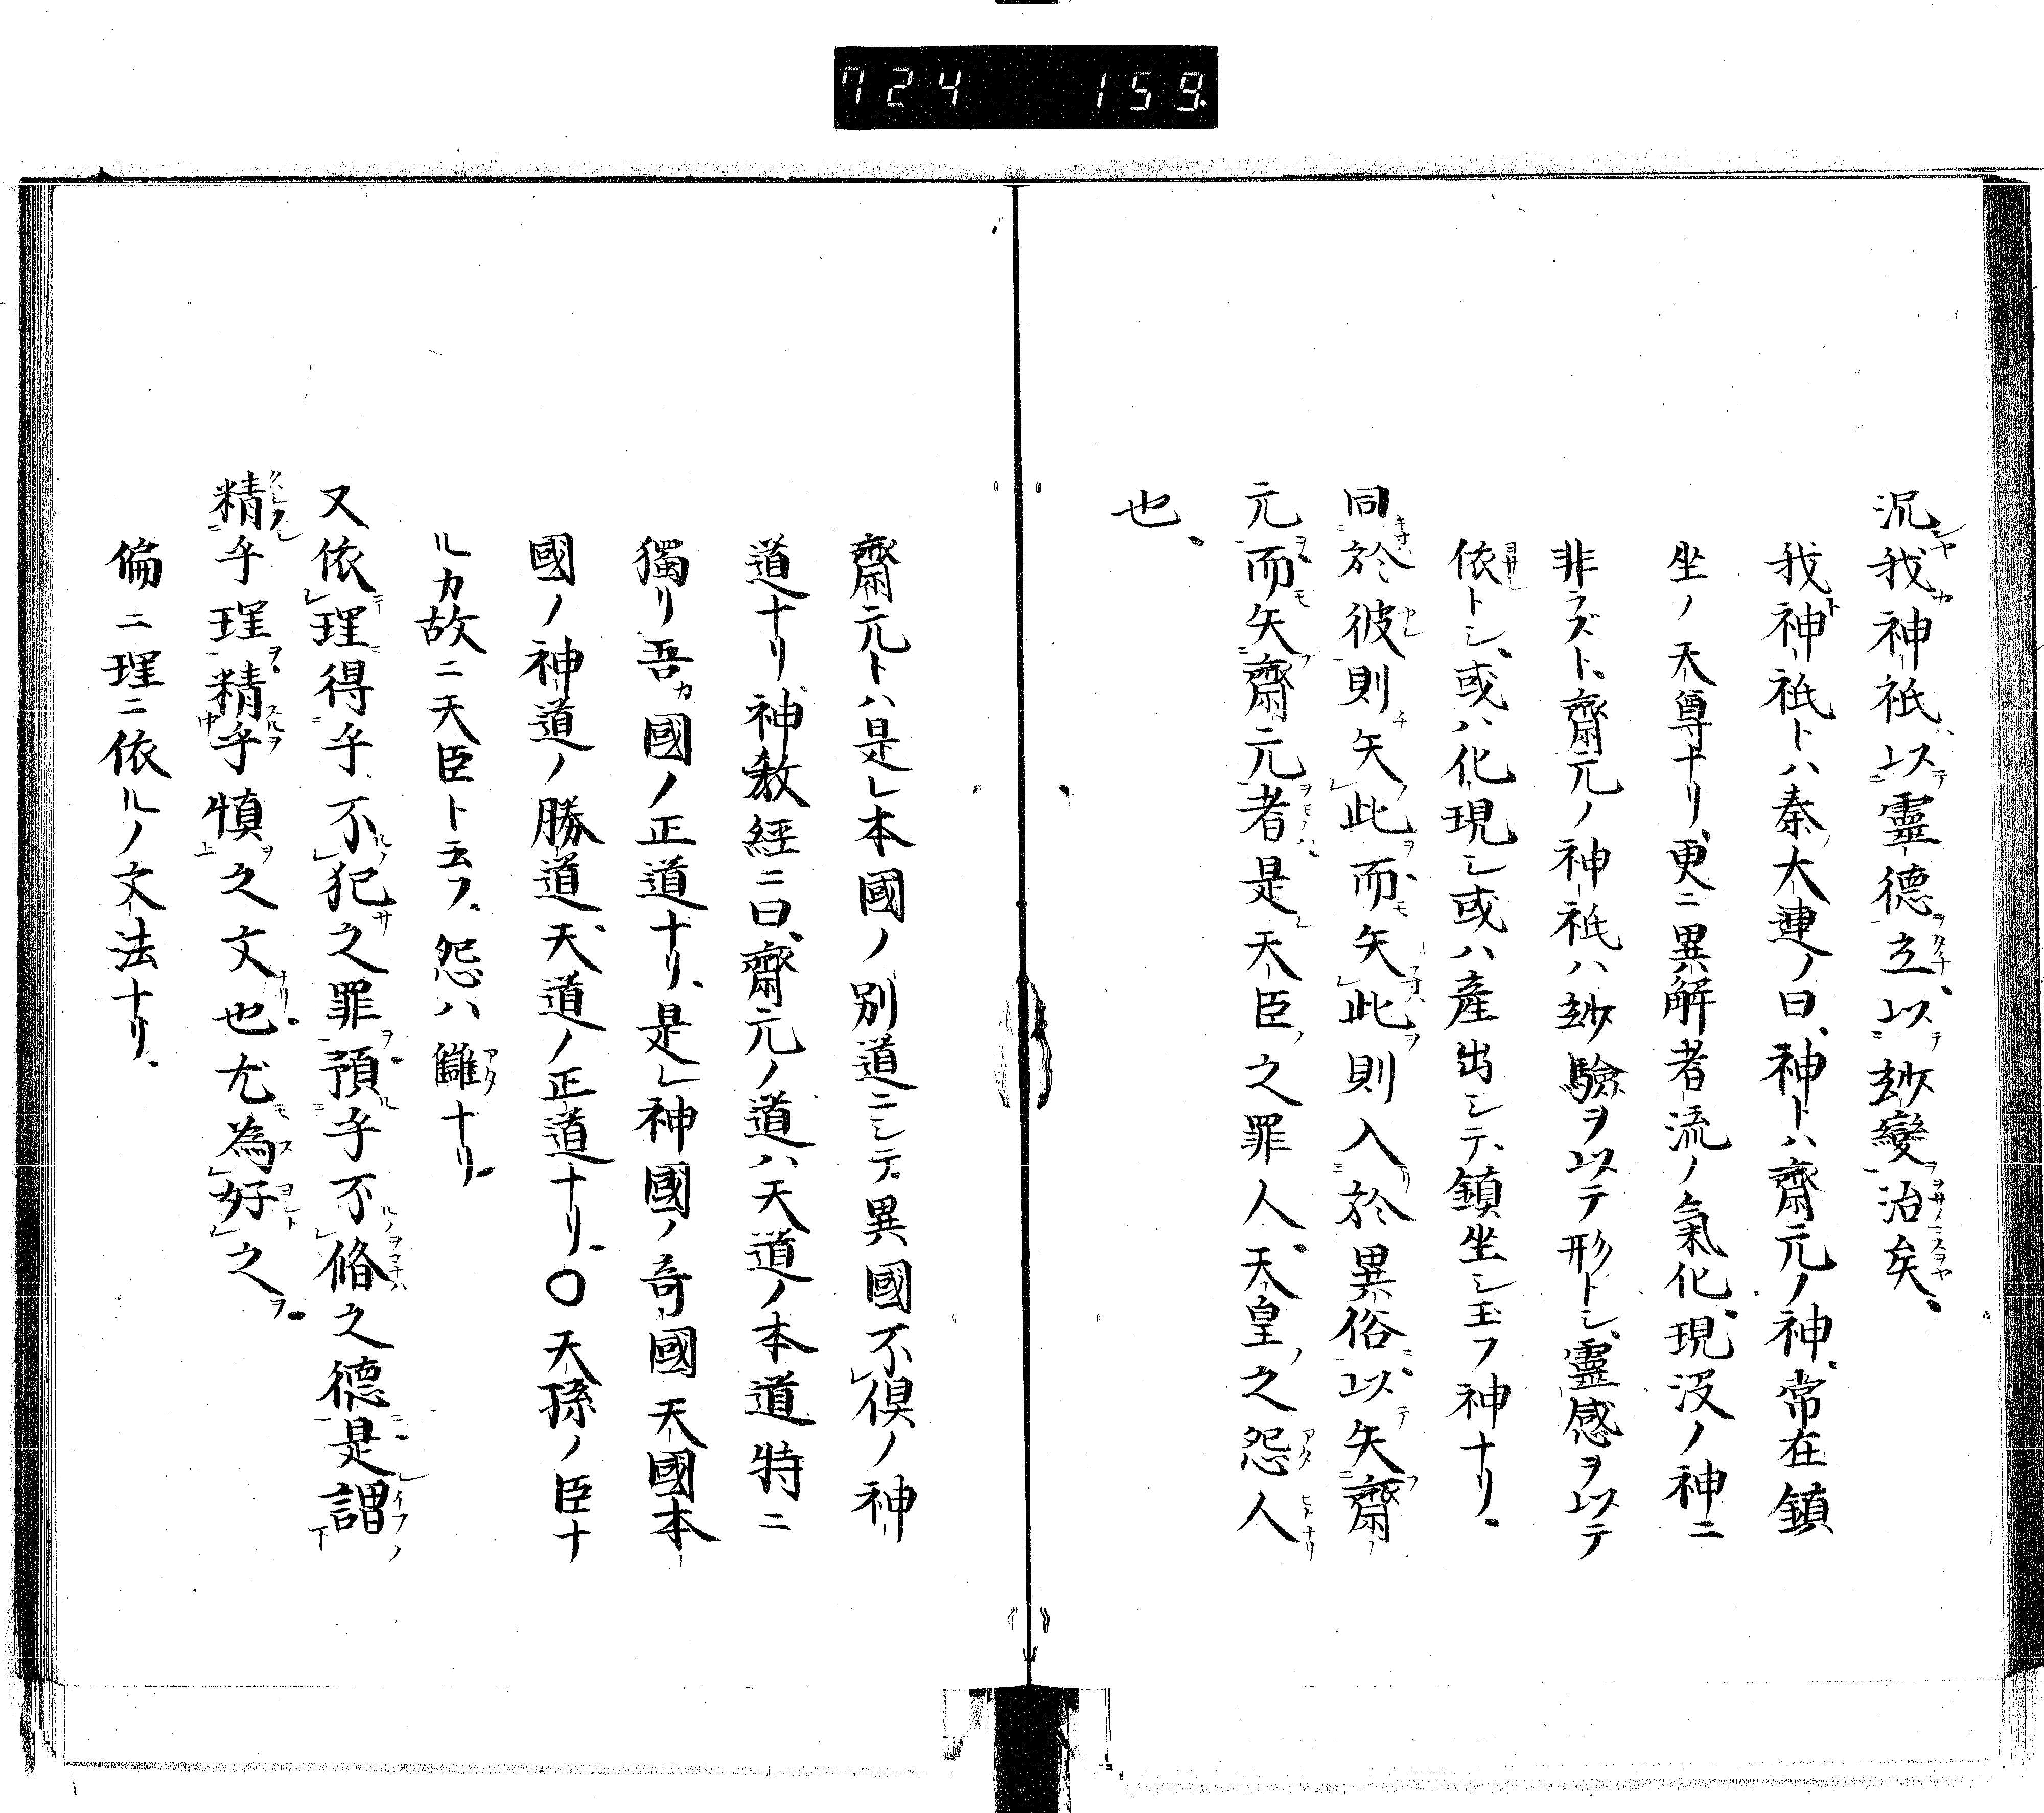 724 159
況我神祇以靈德立以玅變治矣
我神祇トハ秦大連ノ曰神トハ齋元ノ神常在鎮
坐ノ天尊ナリ更ニ異解者流ノ氣化現沒ノ神ニ
非ラズト齋元ノ神祇ハ玅驗ヲ以テ形トシ靈感ヲ以テ
依トシ或ハ化現シ或ハ産出シテ鎮坐シ玉フ神ナリ
同於彼則矢此而矢此則入於異俗以矢齋
元而矢齋元者是天臣之罪人天皇之怨人
也
齋元トハ是レ本國ノ別道ニシテ異國不倶ノ神
道ナリ神敎經ニ曰齋元ノ道ハ天道ノ本道特ニ
獨リ吾カ國ノ正道ナリ是レ神國ノ奇國天國本
國ノ神道ノ勝道天道ノ正道ナリ〇天孫ノ臣ナ
ルカ故ニ天臣ト云フ怨ハ讎ナリ
又依理得乎不犯之罪預乎不脩之德是謂
精乎理精乎慎之文也尤為好之
偏ニ理ニ依ルノ文法ナリ